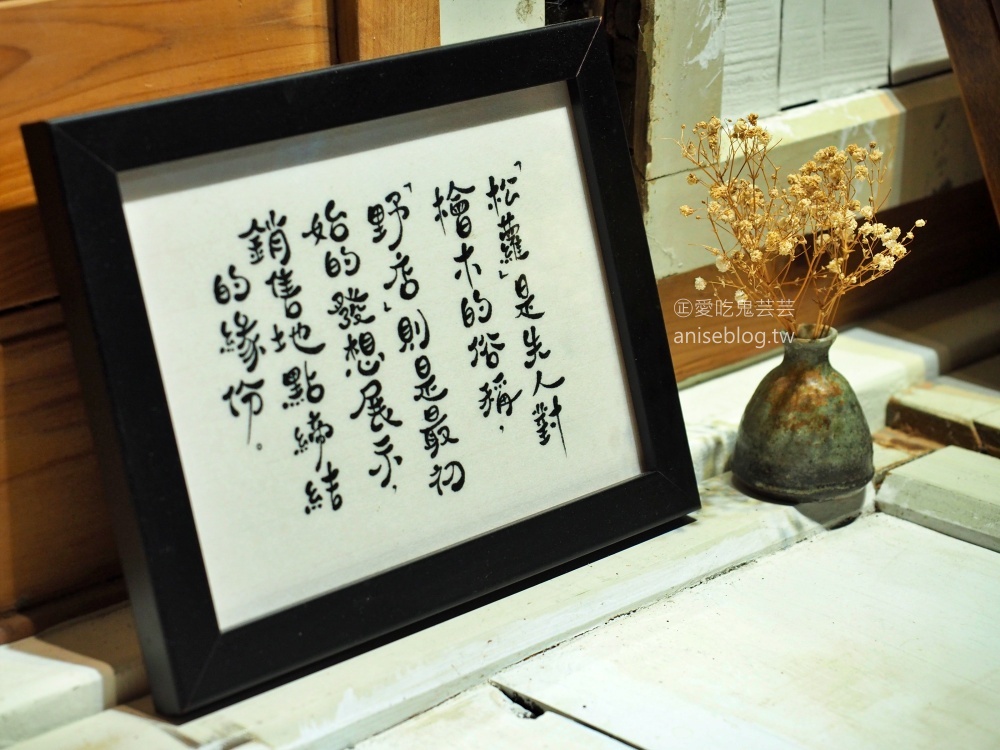 「松蘿」是先人對
檜木的俗稱，
「野店」則是最初
始的發想展示，
銷售地點締結
的緣份。
正愛吃鬼芸芸
aniseblog.tw